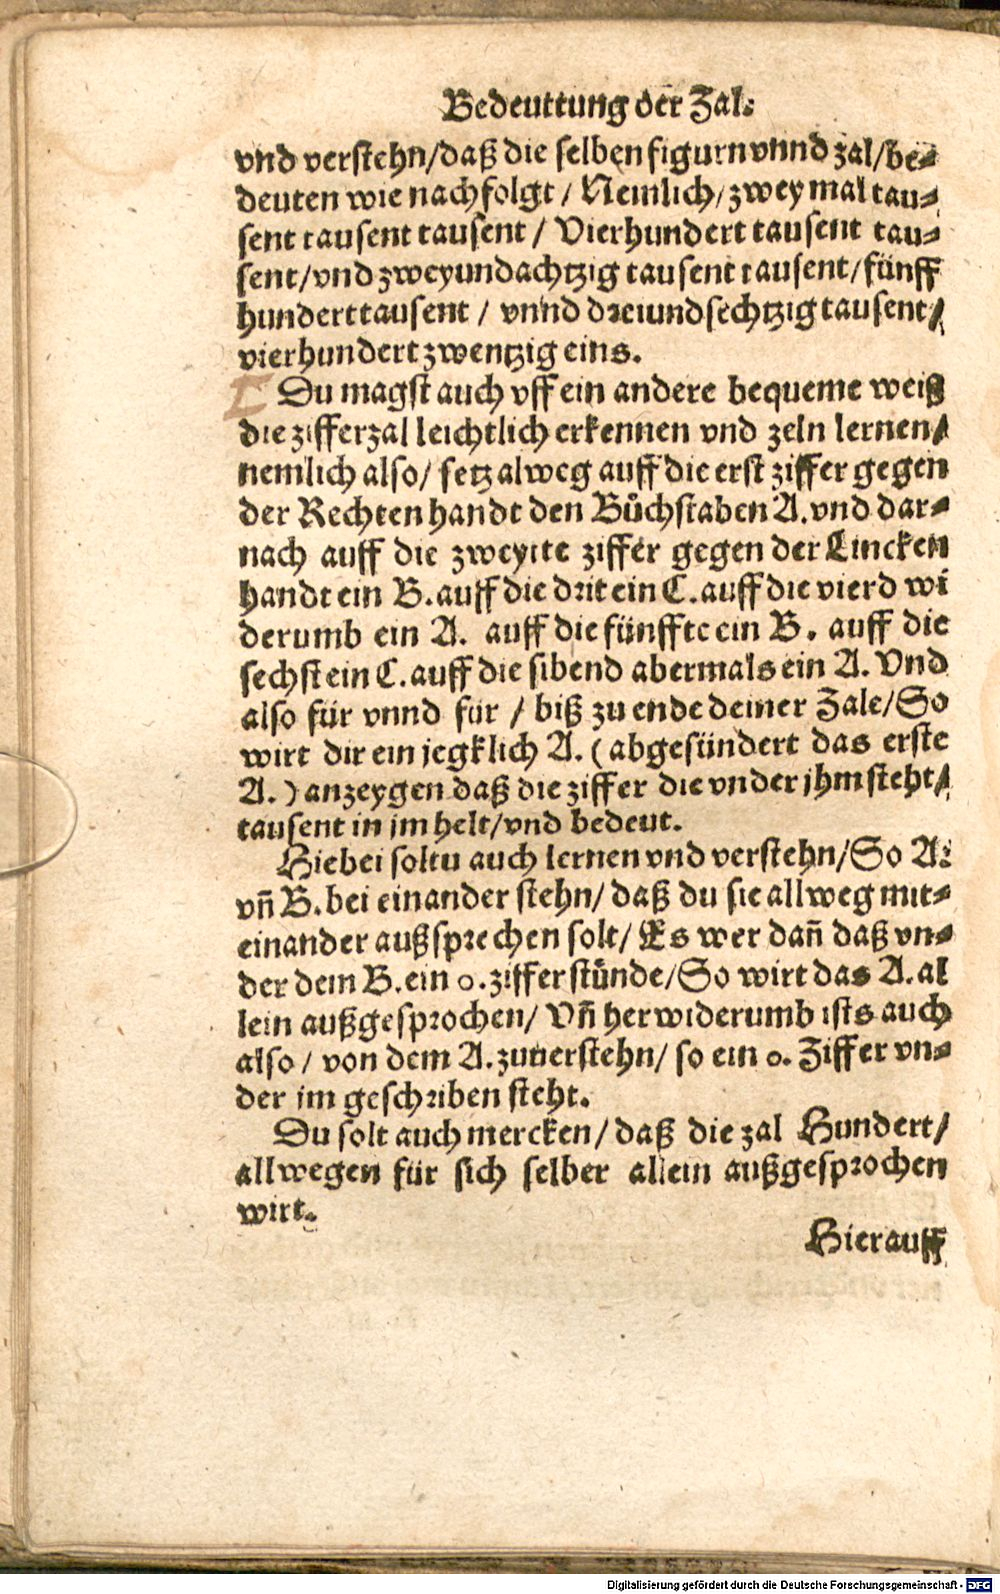 Bedeuttung der Zal.
vnd verstehn/daß die selben figurn vnnd zal/be-
deuten wie nachfolgt / Nemlich/ zwey mal tau-
sent tausent tausent / Vierhundert tausent tau-
sent/vnd zweyundachtzig tausent tausent/fünff
hundert tausent / vnnd dreiundsechtzig tausent/
vierhundert zwentzig eins.
Du magst auch vff ein andere bequeme weiß
die zifferzal leichtlich erkennen vnd zeln lernen/
nemlich also/ setz alweg auff die erst ziffer gegen
der Rechten handt den Bůchstaben A. vnd dar-
nach auff die zweytte ziffer gegen der Lincken
handt ein B. auff die drit ein C. auff die vierd wi
derumb ein A. auff die fünffte ein B. auff die
sechst ein C. auff die sibend abermals ein A. Vnd
also für vnnd für / biß zu ende deiner Zale/So
wirt dir ein jegklich A. (abgesündert das erste
A.) anzeygen daß die ziffer die vnder jhm steht/
tausent in jm helt/vnd bedeut.
Hiebei soltu auch lernen vnd verstehn/So A.
vñ B. bei einander stehn/ daß du sie allweg mit-
einander außsprechen solt/ Es wer dañ daß vn-
der dem B. ein o. ziffer stünde/So wirt das A. al
lein außgesprochen/ Vñ herwiderumb ists auch
also / von dem A. zuuerstehn/ so ein o. Ziffer vn-
der im geschriben steht.
Du solt auch mercken/ daß die zal Hundert/
allwegen für sich selber allein außgesprochen
wirt.
Hierauff
Digitalisierung gefördert durch die Deutsche Forschungsgemeinschaft - DFG